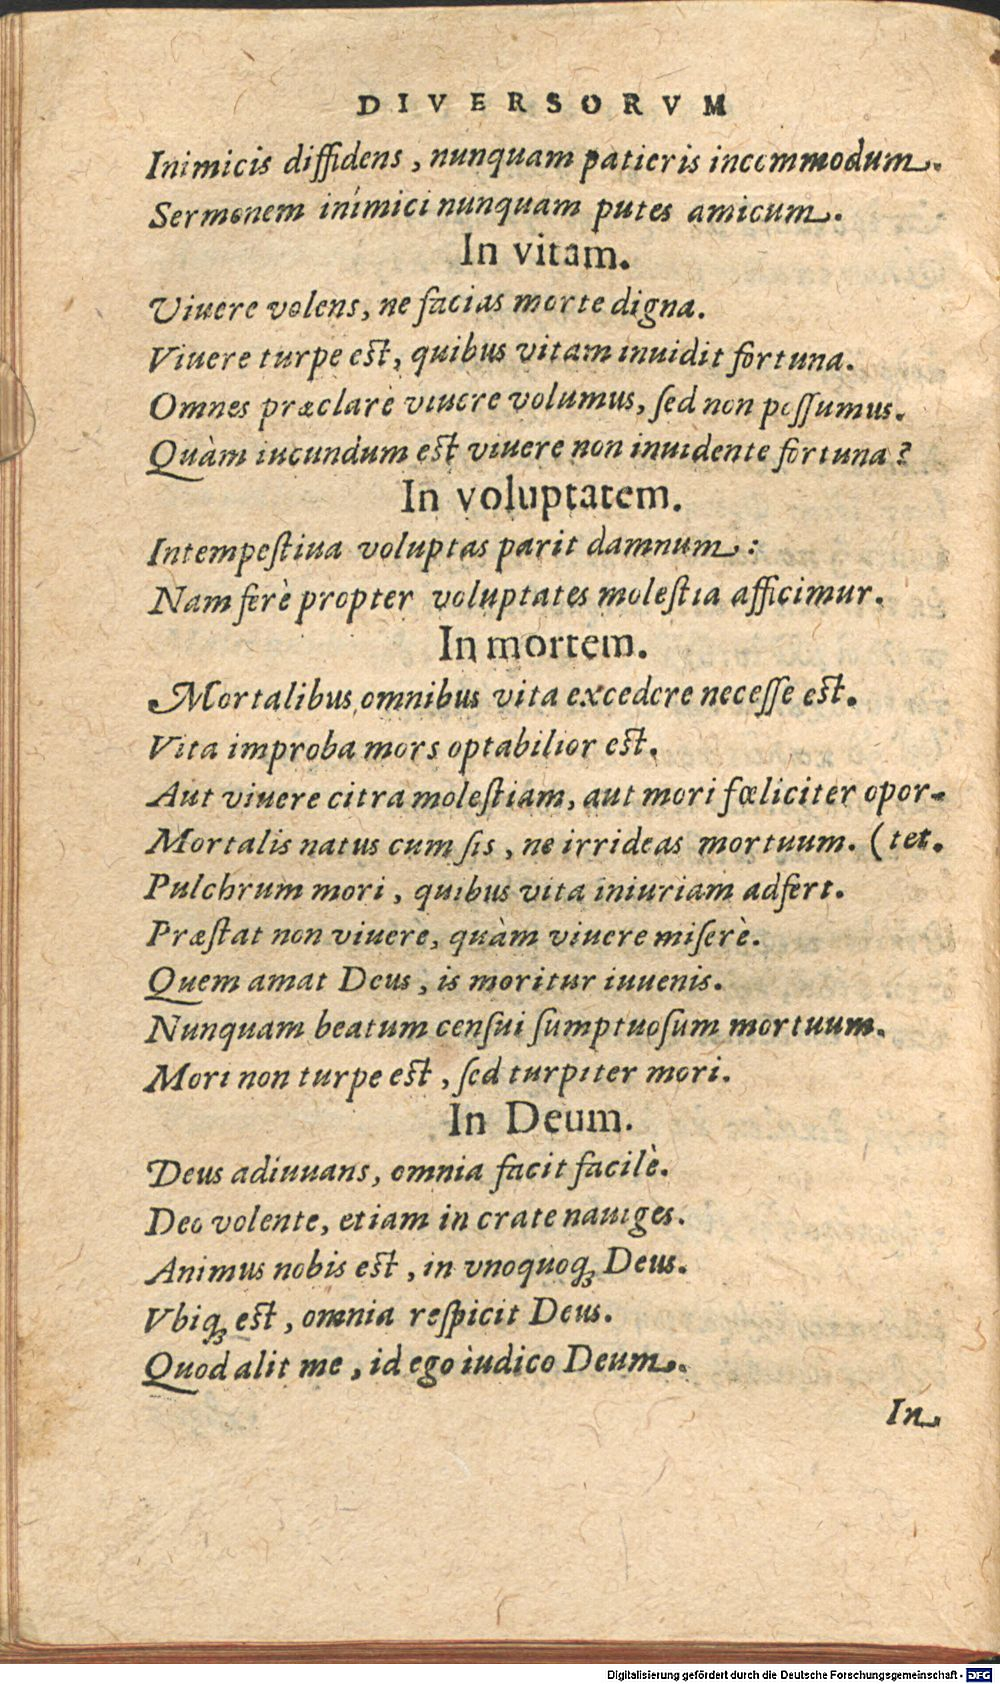 DIVERSORVM
Inimicis diffidens, nunquam patieris incommodum.
Sermonem inimici nunquam putes amicum.
In vitam.
Viuere volens, ne facias morte digna.
Viuere turpe est, quibus vitam inuidit fortuna.
Omnes præclarè viuere volumus, ſed non poſſumus.
Quàm iucundum est viuere non inuidente fortuna?
In voluptatem.
Intempeſtiua voluptas parit damnum:
Nam ferè propter voluptates moleſtia afficimur.
In mortem.
Mortalibus omnibus vita excedere neceſſe est.
Vita improba mors optabilior est.
Aut viuere citra moleſtiam, aut mori fœliciter opor-
Mortalis natus cum ſis, ne irrideas mortuum. (tet.
Pulchrum mori, quibus vita iniuriam adfert.
Præſtat non viuere, quàm viuere miſerè.
Quem amat Deus, is moritur iuuenis.
Nunquam beatum cenſui ſumptuoſum mortuum.
Mori non turpe est, ſed turpiter mori.
In Deum.
Deus adiuuans, omnia facit facilè.
Deo volente, etiam in crate nauiges.
Animus nobis est, in vnoquoqꝫ Deus.
Vbiqꝫ est, omnia reſpicit Deus.
Quod alit me, id ego iudico Deum.
In
Digitalisierung gefördert durch die Deutsche Forschungsgemeinschaft - DFG